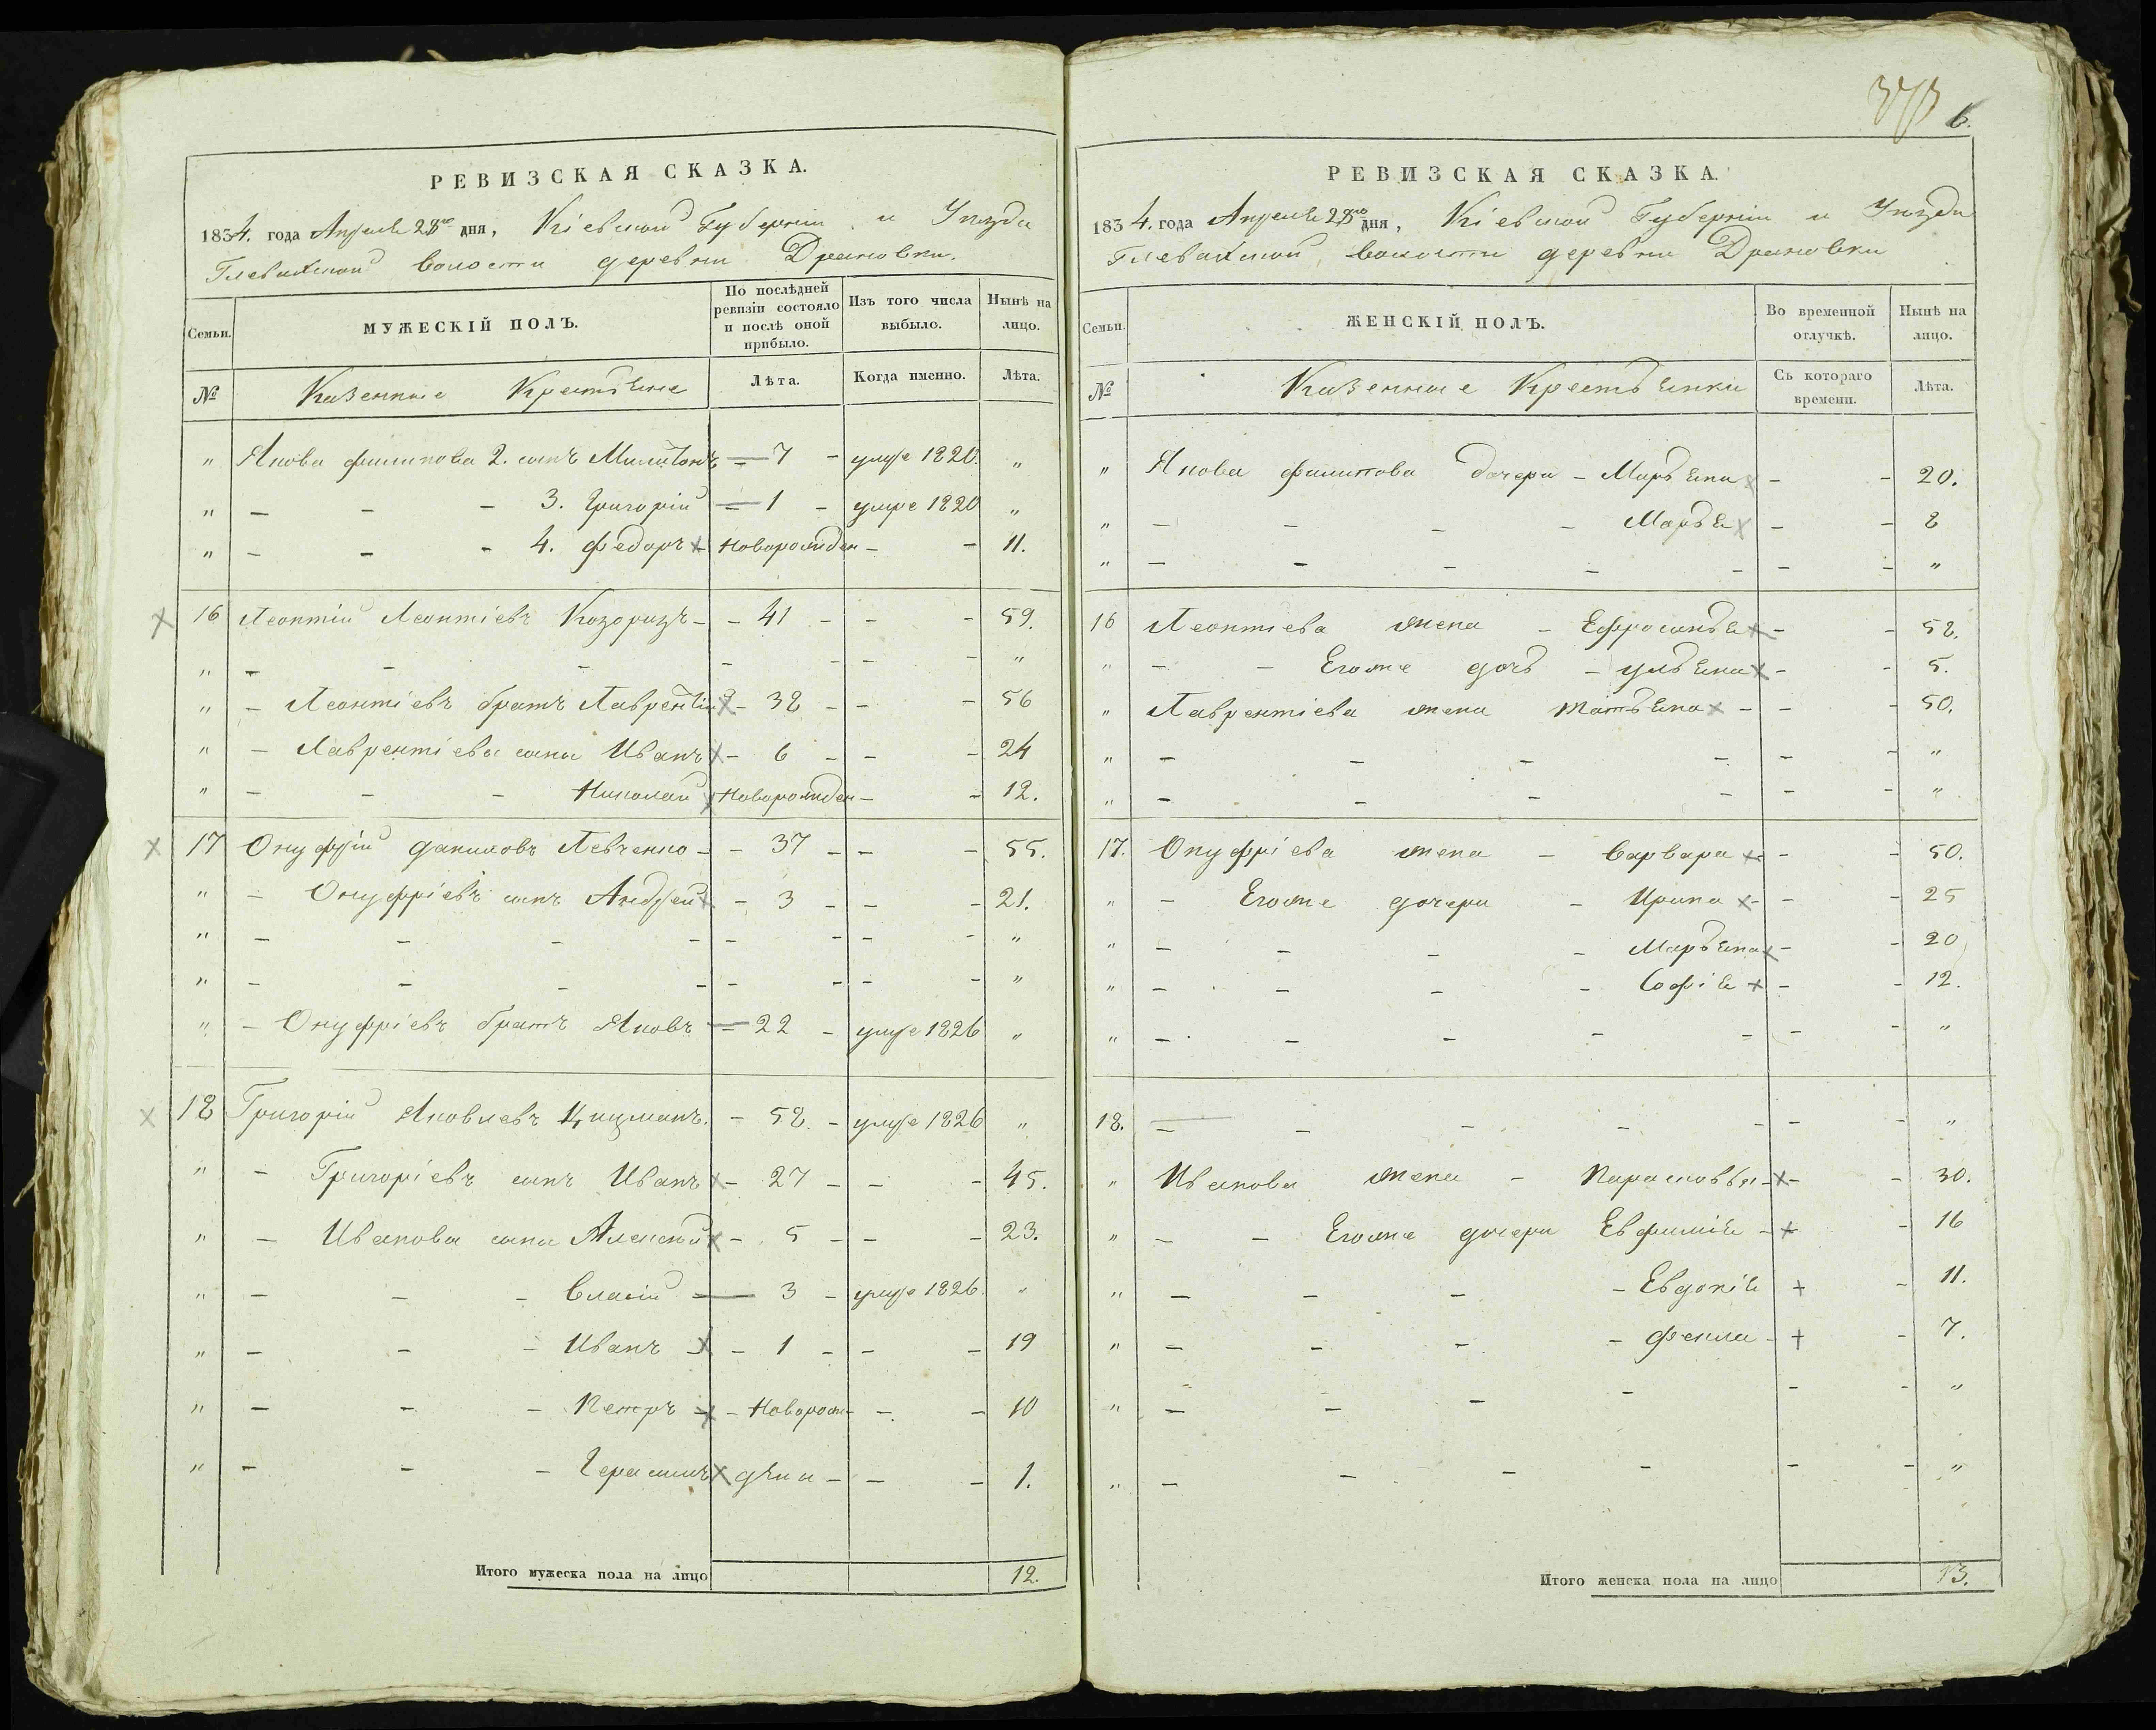 373
6.
РЕВИЗСКАЯ СКАЗКА.
1834. года Апреля 28го дня, Кіевской Губерніи и Уезда
Глевахской волости деревни Драновки.
Семьи.
МУЖЕСКІЙ ПОЛЪ.
По послѣдней ревизіи состояло и послѣ оной прибыло.
Изъ того числа выбыло.
Нынѣ на лицо.
№
Казенные Крестьяне
Лѣта.
Когда именно.
Лѣта.
" Якова Филипова 2. сынъ — 7 - умре 1820. "
" - - - 3. Григорій — 1 - умре 1820 "
" - - - 4. Федоръ Новорожден - - 11.
16 Леонтій Леонтіевъ Козоризъ - - 41 - - - 59.
" - - - - - - - "
" - Леонтіевъ братъ Лаврентій - 38 - - - 56
" - Лаврентіева сыны Иванъ - 6 - - - 24
" - - - Николай Новорожден - - 12.
17 Онуфрій Даниловъ Левченко - - 37 - - - 55.
" - Онуфріевъ сынъ Андрей - 3 - - - 21.
" - - - - - - - - "
" - - - - - - - - "
" - Онуфріевъ братъ Яковъ — 22 - умре 1826 "
18 Григорій Яковлевъ Кицманъ. - 58. - умре 1826 "
" - Григоріевъ сынъ Иванъ - 27 - - - 45.
" - Иванова сыны Алексей - 5 - - - 23.
" - - - Власій — 3 - умре 1826. "
" - - - Иванъ - 1 - - - 19
" - - - Петръ - Новорож - - - 10
" - - - Герасимъ дени - - - 1.
Итого мужеска пола на лицо 12.
РЕВИЗСКАЯ СКАЗКА.
1834. года Апреля 28го дня, Кіевской Губерніи и Уезда
Глевахской волости деревни Драновки
Семьи.
ЖЕНСКІЙ ПОЛЪ.
Во временной отлучкѣ.
Нынѣ на лицо.
№
Казенные Крестьянки
Съ котораго времени.
Лѣта.
" Якова Филипова дочери - Марьяна - - 20.
" - - - - Марья - - 8
" - - - - - - - "
16 Леонтіева жена - Ефросинья - - 58.
" - - Егоже дочь - Ульяна - - 5.
" Лаврентіева жена Татьяна - - - 50.
" - - - - - - "
" - - - - - - "
17. Онуфріева жена - Варвара - - 50.
" - Егоже дочери - Ирина - - 25
" - - - - Марьяна - - 20
" - - - - Софія - - 12.
" - - - - - - - "
18. - - - - - - - "
" Иванова жена - Парасковья - - 30.
" - - Егоже дочери Евфимія - - 16
" - - - - Евдокія - 11.
" - - - - Фекла - - 7.
" - - - - - - "
" - - - - - - "
Итого женска пола на лицо 13.